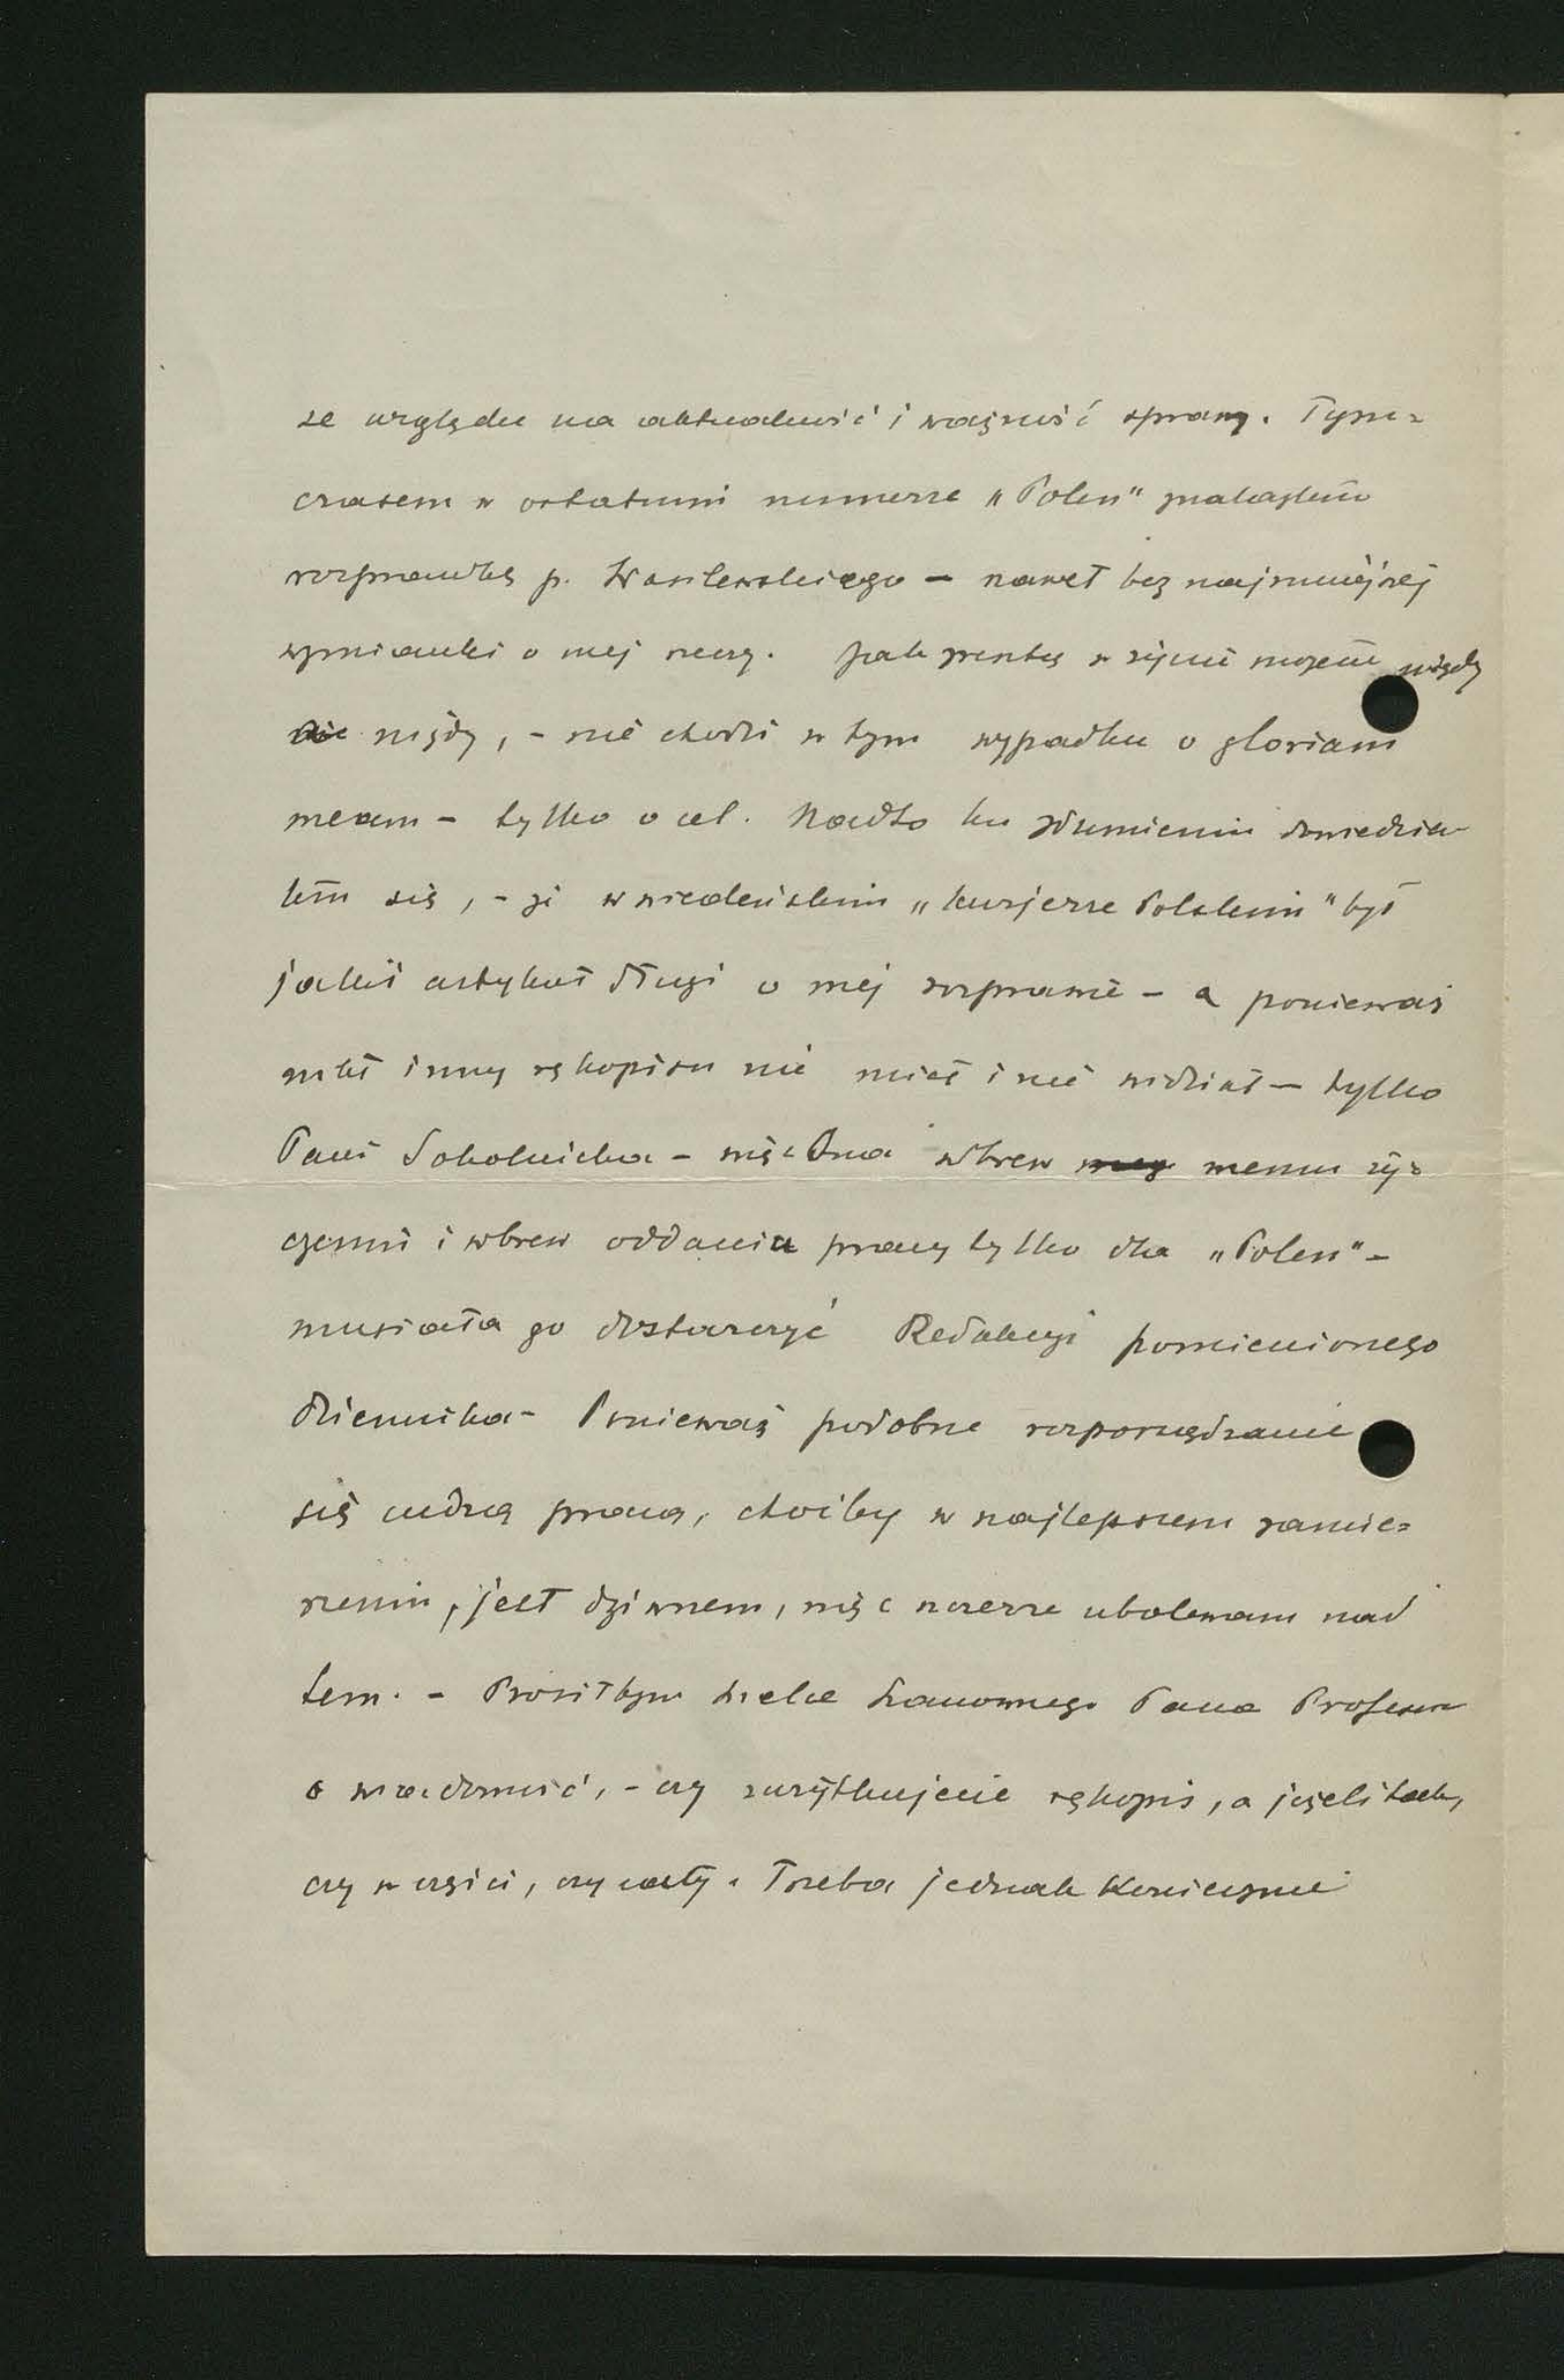 ze względu na aktualność i ważność sprawy. Tym=
czasem w ostatnim numerze „Polen" znalazłem
rozprawkę p. Wasilewskiego — nawet bez najmniejszej
wzmianki o mej rzeczy. Jak zresztą w życiu mojem nigdy
nigdy, - nie chodzi w tym wypadku o gloriam
meam - tylko o cel. Nadto ku zdumieniu dowiedzia-
łem się, - że w wiedeńskim „Kurjerze Polskim" był
jakiś artykuł długi o mej rozprawie - a ponieważ
nikt inny rękopisu nie miał i nie widział — tylko
Pani Sokolnicka - więc Ona wbrew memu ży=
czeniu i wbrew oddaniu pracy tylko dla „Polen" -
musiała go dostarczyć Redakcyi pomienionego
dziennika - Ponieważ podobne rozporządzanie
się cudzą pracą, choćby w najlepszem zamie=
rzeniu, jest dziwnem, więc szczerze ubolewam nad
tem. - Prosiłbym wielce Szanownego Pana Profesora
o wiadomość, - czy zużytkujecie rękopis, a jeżeli tak,
czy w części, czy cały. Trzeba jednak koniecznie